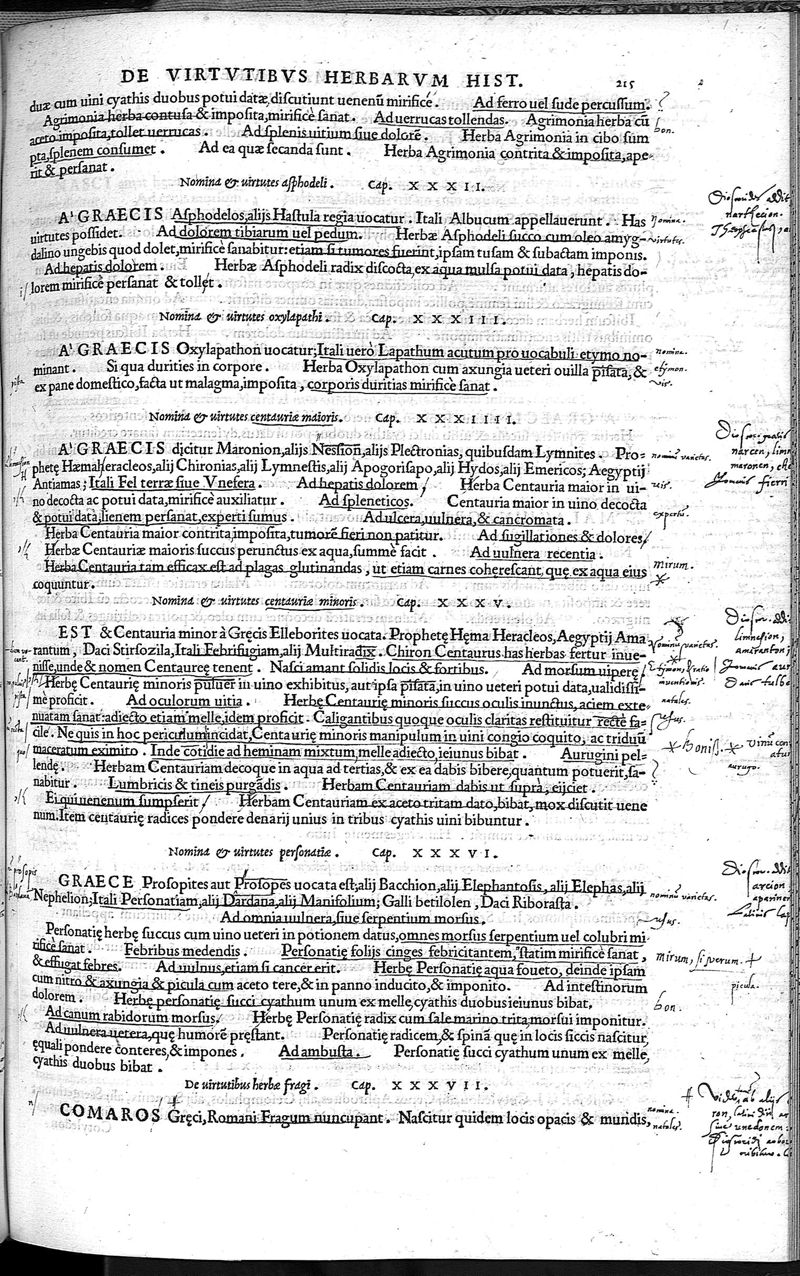 DE VIRTVTIBVS HERBARVM HIST. 215
duæ cum uini cyathis duobus potui datæ, discutiunt uenenũ mirifice. Ad ferro uel sude percussum.
Agrimonia herba contusa & imposita, mirifice sanat. Ad uerrucas tollendas. Agrimonia herba cũ
aceto imposita, tollet uerrucas. Ad splenis uitium siue dolorẽ. Herba Agrimonia in cibo sum
pta, splenem consumet. Ad ea quæ secanda sunt. Herba Agrimonia contrita & imposita, ape-
rit & persanat.
bon.
Nomina & uirtutes asphodeli. Cap. XXXII.
A' GRAECIS Asphodelos, alijs Hastula regia uocatur. Itali Albucum appellauerunt. Has
uirtutes possidet. Ad dolorem tibiarum uel pedum. Herbæ Asphodeli succo cum oleo amyg-
dalino ungebis quod dolet, mirifice sanabitur: etiam si tumores fuerint, ipsam tusam & subactam imponis.
Ad hepatis dolorem. Herbæ Asphodeli radix discocta, ex aqua mulsa potui data, hepatis do-
lorem mirifice persanat & tollet.
nomina.
uirtutes.
Nomina & uirtutes oxylapathi. Cap. XXXIII.
A' GRAECIS Oxylapathon uocatur; Itali uero Lapathum acutum pro uocabuli etymo no-
minant. Si qua durities in corpore. Herba Oxylapathon cum axungia ueteri ouilla pisata, &
ex pane domestico, facta ut malagma, imposita, corporis duritias mirifice sanat.
nomina.
etymon.
uis.
Nomina & uirtutes centauriæ maioris. Cap. XXXIIII.
A' GRAECIS dicitur Maronion, alijs Nession, alijs Plectronias, quibusdam Lymnites. Pro-
phetę Hæmaheracleos, alij Chironias, alij Lymnestis, alij Apogorisapo, alij Hydos, alij Emericos; Aegyptij
Antiamas; Itali Fel terræ siue Vnefera. Ad hepatis dolorem. Herba Centauria maior in ui-
no decocta ac potui data, mirifice auxiliatur. Ad spleneticos. Centauria maior in uino decocta
& potui data, lienem persanat, experti sumus. Ad ulcera, uulnera, & cancromata.
Herba Centauria maior contrita, imposita, tumorẽ fieri non patitur. Ad sugillationes & dolores,
Herbæ Centauriæ maioris succus perunctus ex aqua, summe facit. Ad uulnera recentia.
Herba Centauria tam efficax est ad plagas glutinandas, ut etiam carnes cohęrescant, quę ex aqua eius
coquuntur.
nominũ varietas.
uis.
mirum.
Nomina & uirtutes centauriæ minoris. Cap. XXXV.
EST & Centauria minor à Gręcis Elleborites uocata. Prophetę Hęma Heracleos, Aegyptij Ama
rantum, Daci Stirsozila, Itali Febrifugiam, alij Multiradix. Chiron Centaurus has herbas fertur inue-
nisse, unde & nomen Centaureę tenent. Nasci amant solidis locis & fortibus. Ad morsum uiperę
Herbę Centaurię minoris puluer in uino exhibitus, aut ipsa pisata, in uino ueteri potui data, ualidissi-
me proficit. Ad oculorum uitia. Herbę Centaurię minoris succus oculis inunctus, aciem exte-
nuatam sanat: adiecto etiam melle, idem proficit. Caligantibus quoque oculis claritas restituitur recte fa-
cile. Ne quis in hoc periculum incidat, Centaurię minoris manipulum in uini congio coquito, ac triduũ
maceratum eximito. Inde cotidie ad heminam mixtum, melle adiecto, ieiunus bibat. Aurugini pel-
lendę. Herbam Centauriam decoque in aqua ad tertias, & ex ea dabis bibere, quantum potuerit, sa-
nabitur. Lumbricis & tineis purgādis. Herbam Centauriam dabis ut supra, eijciet.
Ei qui uenenum sumpserit. Herbam Centauriam ex aceto tritam dato, bibat, mox discutit uene
num. Item centaurię radices pondere denarij unius in tribus cyathis uini bibuntur.
nominũ varietas.
natales.
usus.
aurugo.
Nomina & uirtutes personatiæ. Cap. XXXVI.
GRAECE Prosopites aut Prosopes uocata est; alij Bacchion, alij Elephantosis, alij Elephas, alij
Nephelion; Itali Personatiam, alij Dardana, alij Manifolium; Galli betilolen, Daci Riborasta.
Ad omnia uulnera, siue serpentium morsus.
Personatię herbę succus cum uino ueteri in potionem datus, omnes morsus serpentium uel colubri mi
rifice sanat. Febribus medendis. Personatię folijs cinges febricitantem, statim mirifice sanat,
& effugat febres. Ad uulnus, etiam si cancer erit. Herbę Personatię aqua foueto, deinde ipsam
cum nitro & axungia & picula cum aceto tere, & in panno inducito, & imponito. Ad intestinorum
dolorem. Herbę personatię succi cyathum unum ex melle, cyathis duobus ieiunus bibat.
Ad canum rabidorum morsus. Herbę Personatię radix cum sale marino trita, morsui imponitur.
Ad uulnera uetera, quę humorẽ pręstant. Personatię radicem, & spinā quę in locis siccis nascitur,
ęquali pondere conteres, & impones. Ad ambusta. Personatię succi cyathum unum ex melle,
cyathis duobus bibat.
nominũ varietas.
usus.
mirum, si verum.
picula.
bon.
De uirtutibus herbæ fragi. Cap. XXXVII.
COMAROS Gręci, Romani Fragum nuncupant. Nascitur quidem locis opacis & mundis,
nomina.
natales.